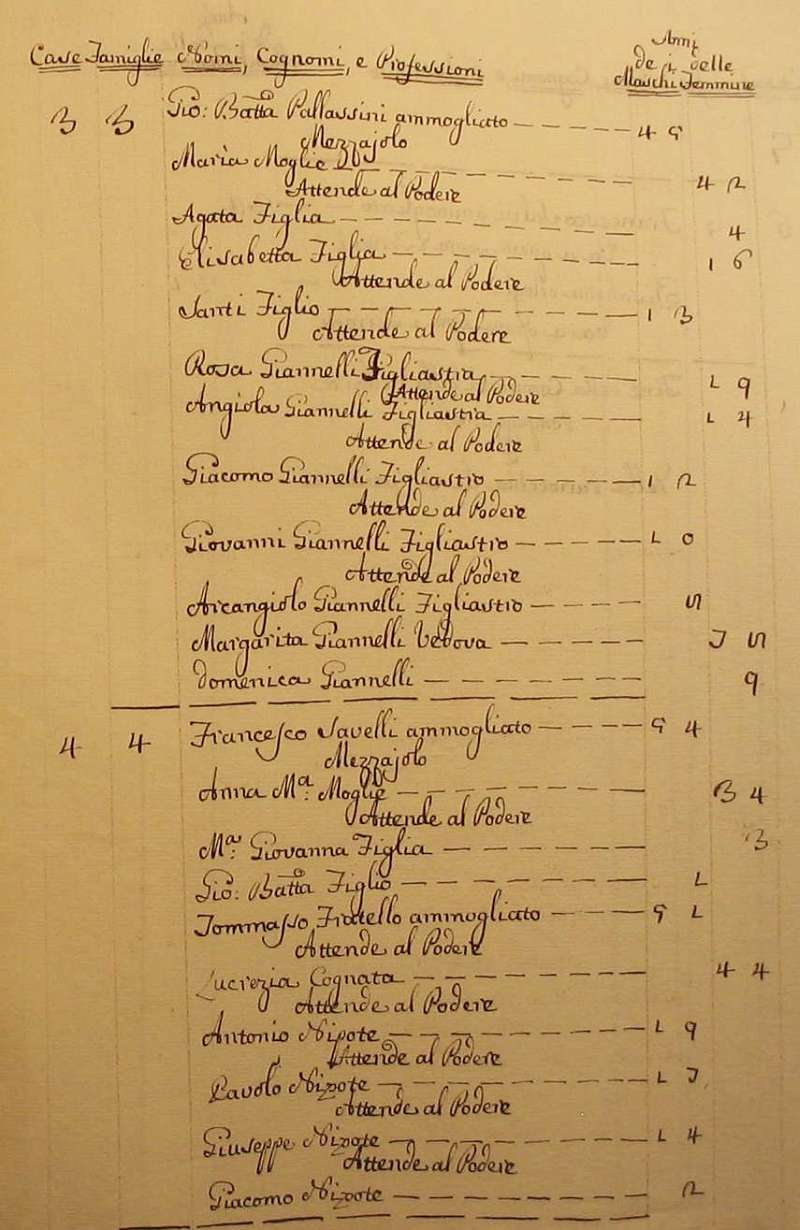 Case Famiglie Nomi, Cognomi, e Professioni Anni
de i delle
Maschi Feminine
3 3 Gio: Batta Pallassini ammogliato 45
Mezzajolo
Maria Moglie 42
Attende al Podere
Agata Figlia 4
Elisabetta Figlia 16
Attende al Podere
Santi Figlio 13
Attende al Podere
Rosa Giannelli Figliastra 19
Attende al Podere
Angiola Giannelli Figliastra 14
Attende al Podere
Giacomo Giannelli Figliastro 12
Attende al Podere
Giovanni Giannelli Figliastro 10
Attende al Podere
Arcangiolo Giannelli Figliastro 8
Margarita Giannelli Vedova 78
Domenica Giannelli 9
4 4 Francesco Savelli ammogliato 54
Mezzajolo
Anna Mª. Moglie 34
Attende al Podere
Mª: Giovanna Figlia 3
Gio: Batta Figlio 1
Tommasso Fratello ammogliato 51
Attende al Podere
Lucrezia Cognata 44
Attende al Podere
Antonio Nipote 19
Attende al Podere
Pavolo Nipote 17
Attende al Podere
Giuseppe Nipote 14
Attende al Podere
Giacomo Nipote 2